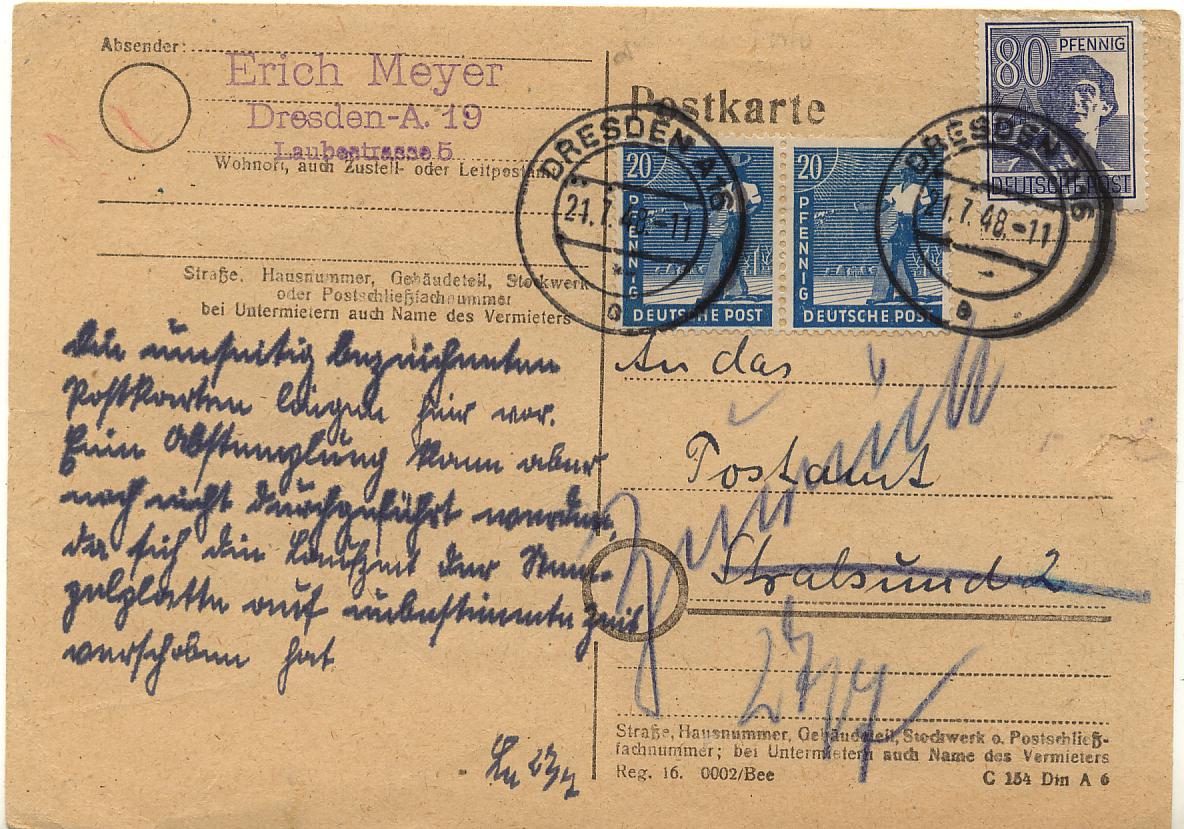 Absender:
Erich Meyer
Dresden-A. 19
Laubestrasse 5
Wohnort, auch Zustell- oder Leitpostamt
Straße, Hausnummer, Gebäudeteil, Stockwerk
oder Postschließfachnummer
bei Untermietern auch Name des Vermieters
Die umseitig bezeichneten
Postkarten liegen hier vor.
Eine Abstemplung kann aber
noch nicht durchgeführt werden,
da sich die Laufzeit der Stem-
pelplatte auf unbestimmte Zeit
verschoben hat
27/7
Postkarte
80 PFENNIG
DEUTSCHE POST
20 PFENNIG
DEUTSCHE POST
20 PFENNIG
DEUTSCHE POST
DRESDEN A16
21.7.48.-11
a
DRESDEN A16
21.7.48.-11
a
An das
Postamt
Stralsund 2
Zurück
27/7
Straße, Hausnummer, Gebäudeteil, Stockwerk o. Postschließ-
fachnummer; bei Untermietern auch Name des Vermieters
Reg. 16. 0002/Bee
C 154 Din A 6